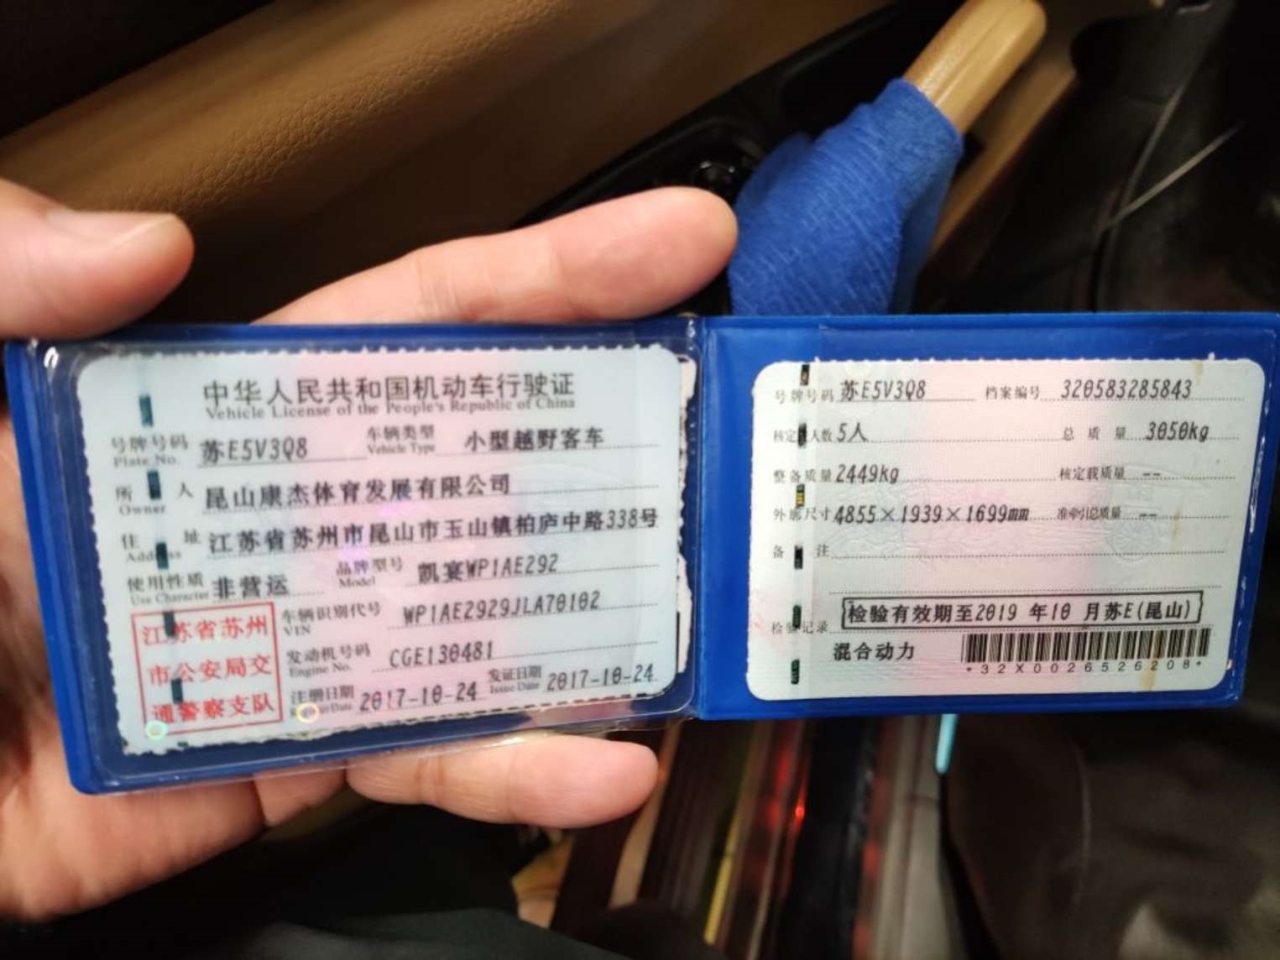 中华人民共和国机动车行驶证
Vehicle License of the People's Republic of China
号牌号码 Plate No. 苏E5V3Q8 车辆类型 Vehicle Type 小型越野客车
所有人 Owner 昆山康杰体育发展有限公司
住址 Address 江苏省苏州市昆山市玉山镇柏庐中路338号
使用性质 Use Character 非营运 品牌型号 Model 凯宴WP1AE292
江苏省苏州
市公安局交
通警察支队
车辆识别代号 VIN WP1AE2929JLA70102
发动机号码 Engine No. CGE130481
注册日期 2017-10-24 发证日期 Issue Date 2017-10-24
号牌号码 苏E5V3Q8 档案编号 320583285843
核定载人数 5人 总质量 3050kg
整备质量 2449kg 核定载质量 --
外廓尺寸 4855×1939×1699mm 准牵引总质量 --
备注
检验记录 检验有效期至2019 年10 月苏E(昆山)
混合动力
*32X0026526208*